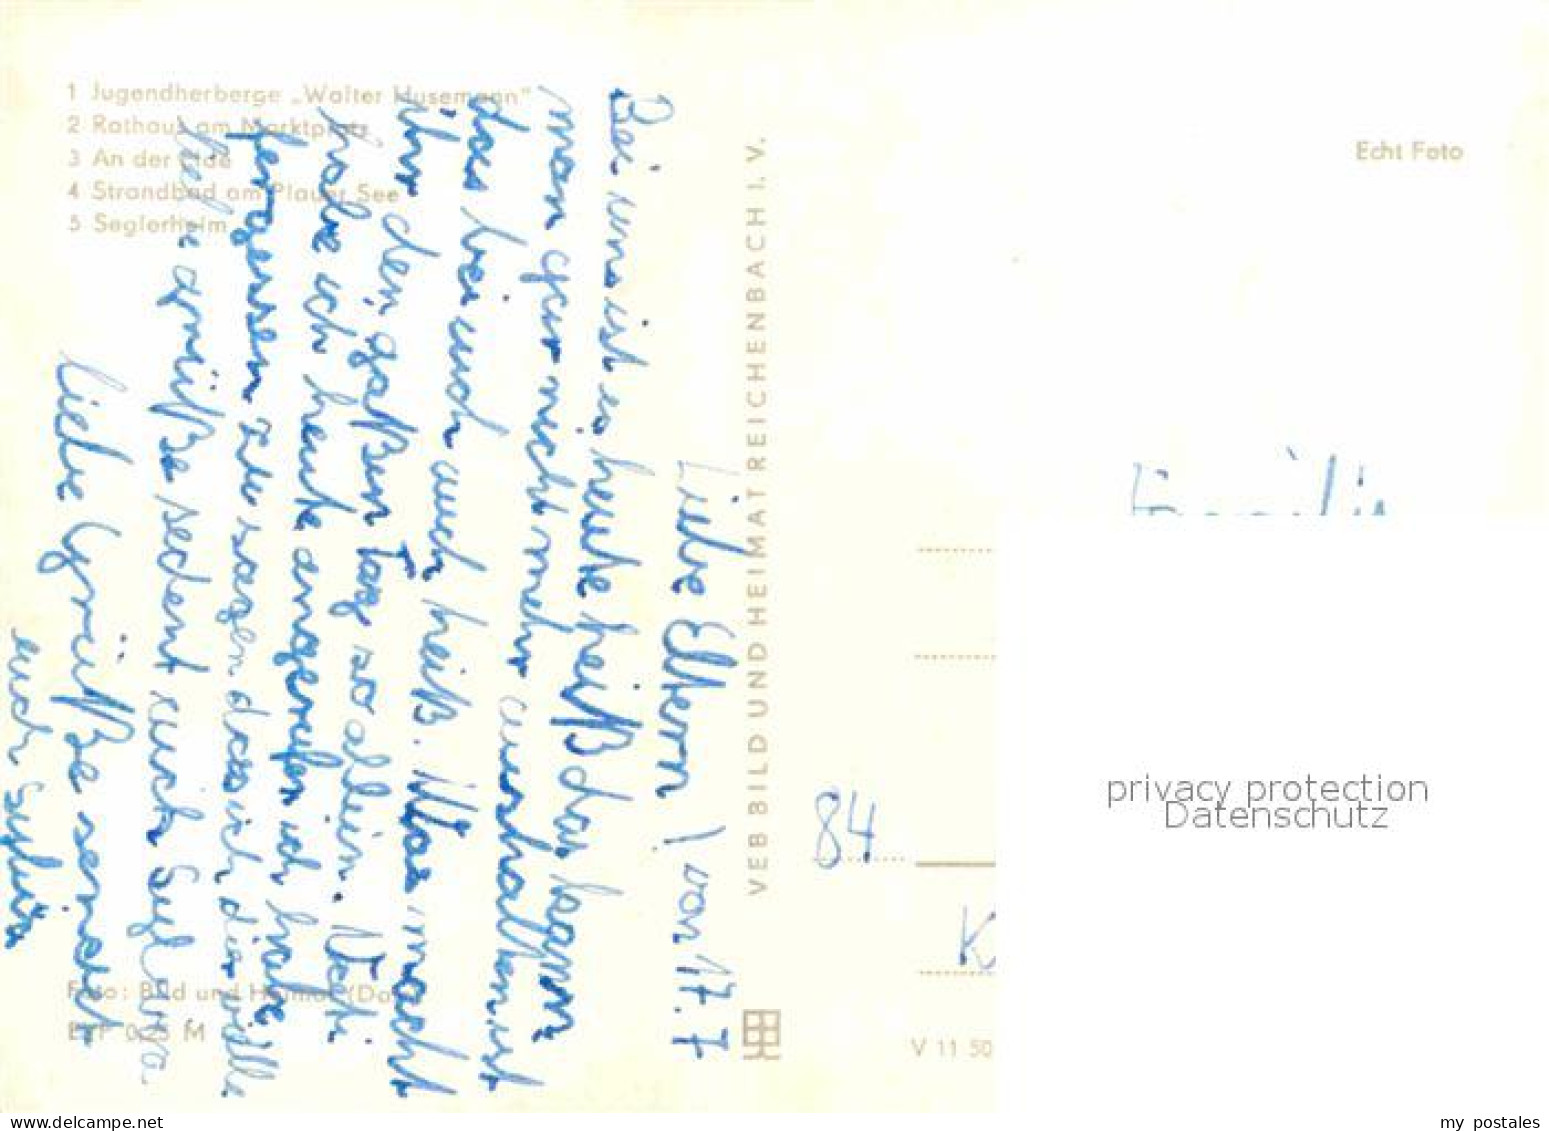 1 Jugendherberge „Walter Husemann"
2 Rathaus am Marktplatz
3 An der Elde
4 Strandbad am Plauer See
5 Seglerheim
Echt Foto
VEB BILD UND HEIMAT REICHENBACH I. V.
Liebe Eltern! von 17.7
Bei uns ist es heute heiß das kann
man gar nicht mehr aushalten ist
das bei euch auch heiß. Was macht
ihr den gaßen Tag so allein. Vati
habe ich heute angerufen ich habe
fergessen zu sagen dass ich dir viele
liebe grüße sedent euch Sylvia.
liebe Grüße sendet
euch Sylvia
Foto: Bild und Heimat
EVP 0,25 M
V 11 50
84
Familie
K
privacy protection
Datenschutz
my postales
www.delcampe.net